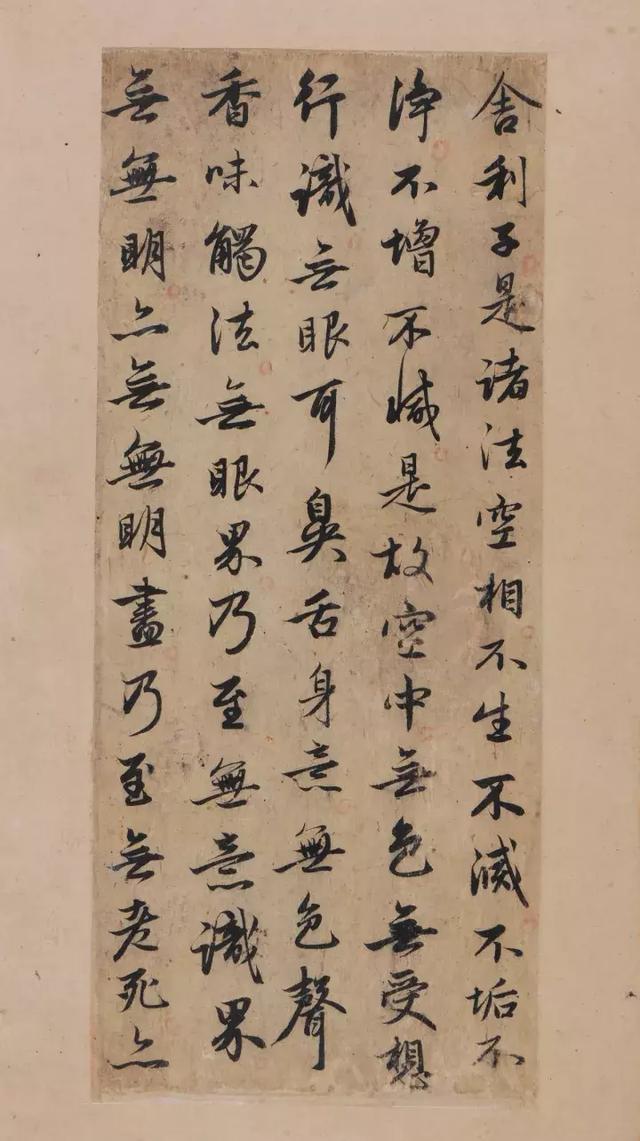 舍利子是诸法空相不生不滅不垢不
淨不增不減是故空中無色無受想
行識無眼耳鼻舌身意無色聲
香味觸法無眼界乃至無意識界
無無明亦無無明盡乃至無老死亦